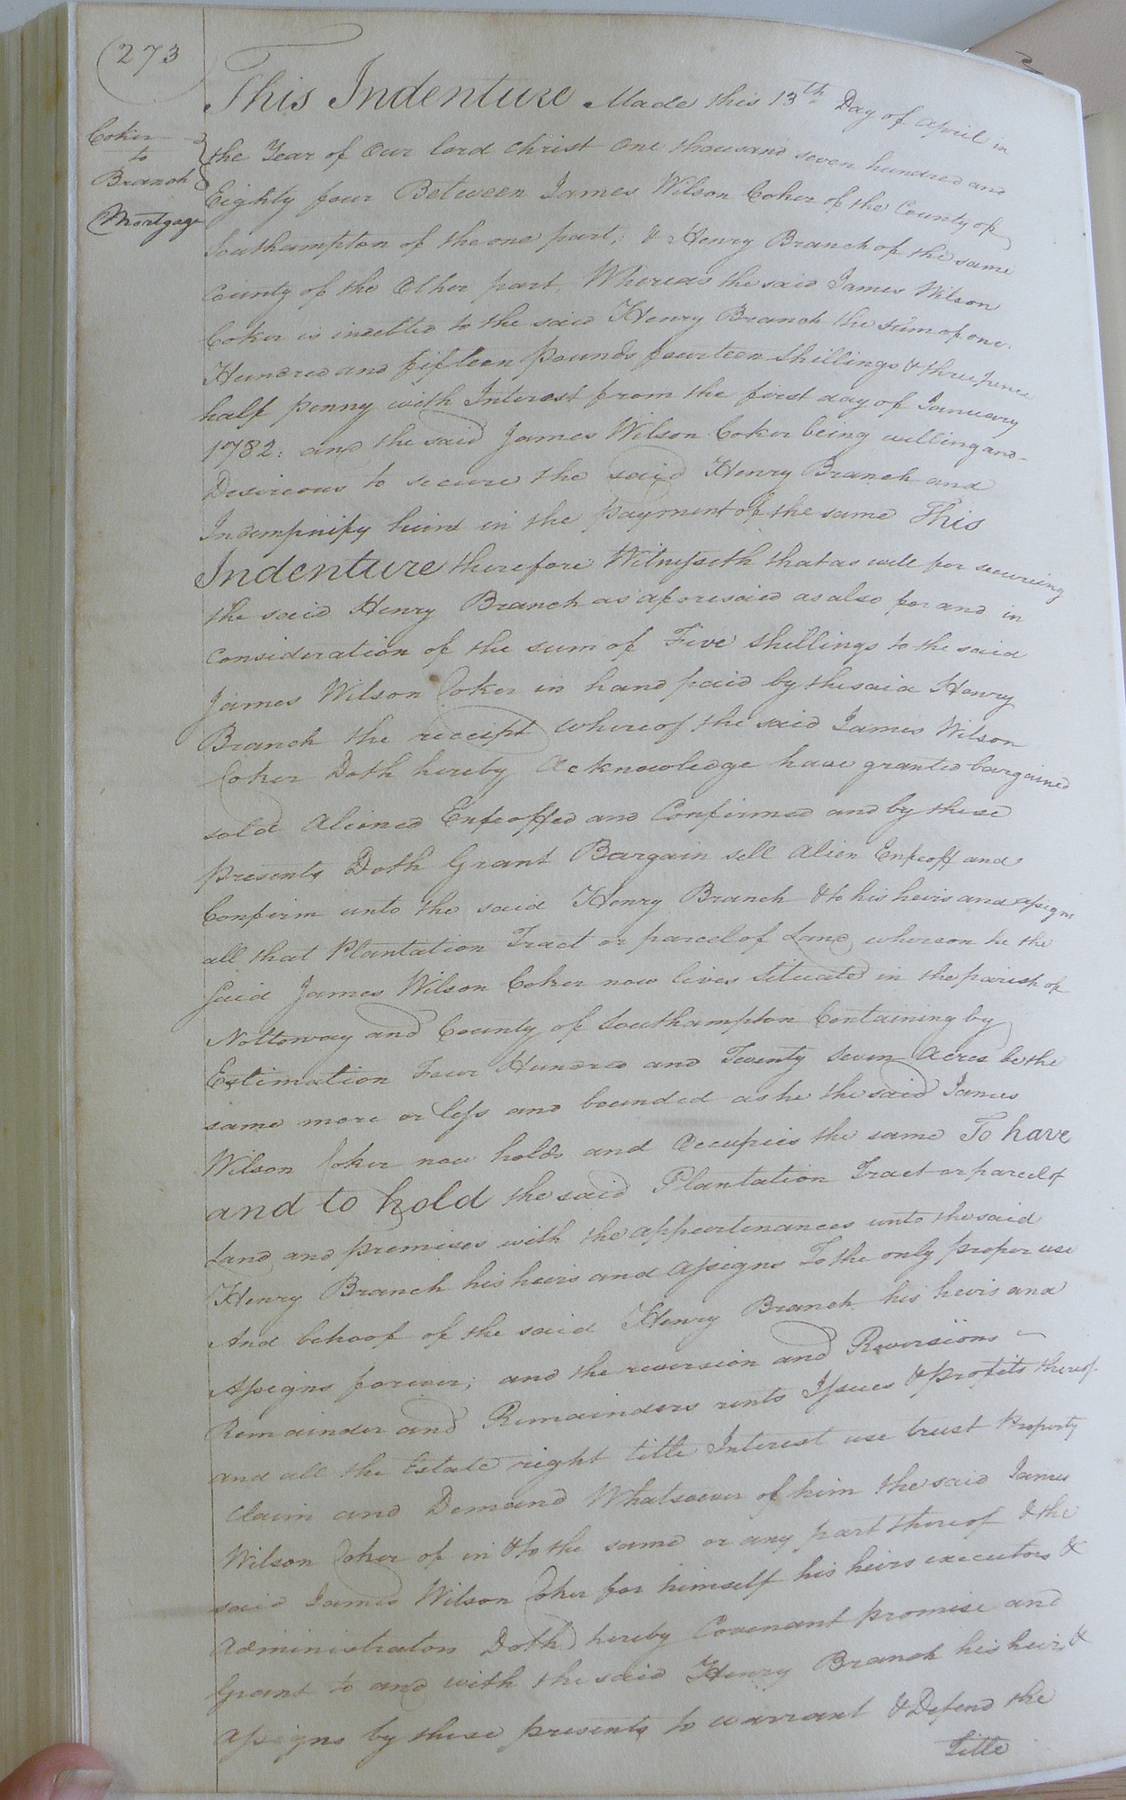 273
Coker
to
Branch
Mortgage
This Indenture Made this 13th Day of April in
the Year of Our lord Christ One thousand seven hundred and
Eighty four Between James Wilson Coker of the County of
Southampton of the one part, & Henry Branch of the same
County of the Other part, Whereas the said James Wilson
Coker is indebted to the said Henry Branch the sum of one
Hundred and fifteen Pounds fourteen Shillings & three pence
half penny with Interest from the first day of January
1782: and the said James Wilson Coker being willing and
Desireous to secure the said Henry Branch and
Indempnify him in the payment of the same This
Indenture therefore Witnesseth that as well for secureing
the said Henry Branch as aforesaid as also for and in
Consideration of the sum of Five Shillings to the said
James Wilson Coker in hand paid by the said Henry
Branch the receipt whereof the said James Wilson
Coker Doth hereby Acknowledge have granted bargained
sold Aliened Enfeoffed and Confirmed and by these
Presents Doth Grant Bargain sell Alien Enfeoff and
Confirm unto the said Henry Branch & to his heirs and assigns
all that Plantation Tract or parcel of Land whereon he the
said James Wilson Coker now lives Situated in the parish of
Nottoway and County of Southampton Containing by
Estimation Four Hundred and Twenty Seven Acres be the
same more or less and bounded as he the said James
Wilson Coker now holds and Occupies the same To have
and to hold the said Plantation Tract or parcel of
Land and premises with the appurtenances unto the said
Henry Branch his heirs and Assigns To the only proper use
And behoof of the said Henry Branch his heirs and
Assigns forever; and the reversion and Reversions
Remainder and Remainders rents Issues & profits thereof
and all the Estate right title Interest use trust Property
Claim and Demand Whatsoever of him the said James
Wilson Coker of in & to the same or any part thereof & the
said James Wilson Coker for himself his heirs executors &
Administrators Doth hereby Covenant promise and
Grant to and with the said Henry Branch his heirs &
Assigns by these presents to warrant & Defend the
Title